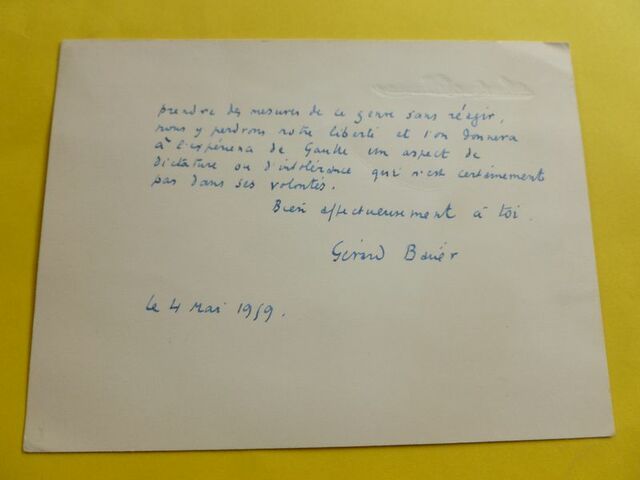 prendre des mesures de ce genre sans réagir,
nous y perdrons notre liberté et l'on donnera
à l'expérience de Gaulle un aspect de
dictature ou d'intolérance qui n'est certainement
pas dans ses volontés.
Bien affectueusement à toi.
Gérard Bauër
le 4 Mai 1959.